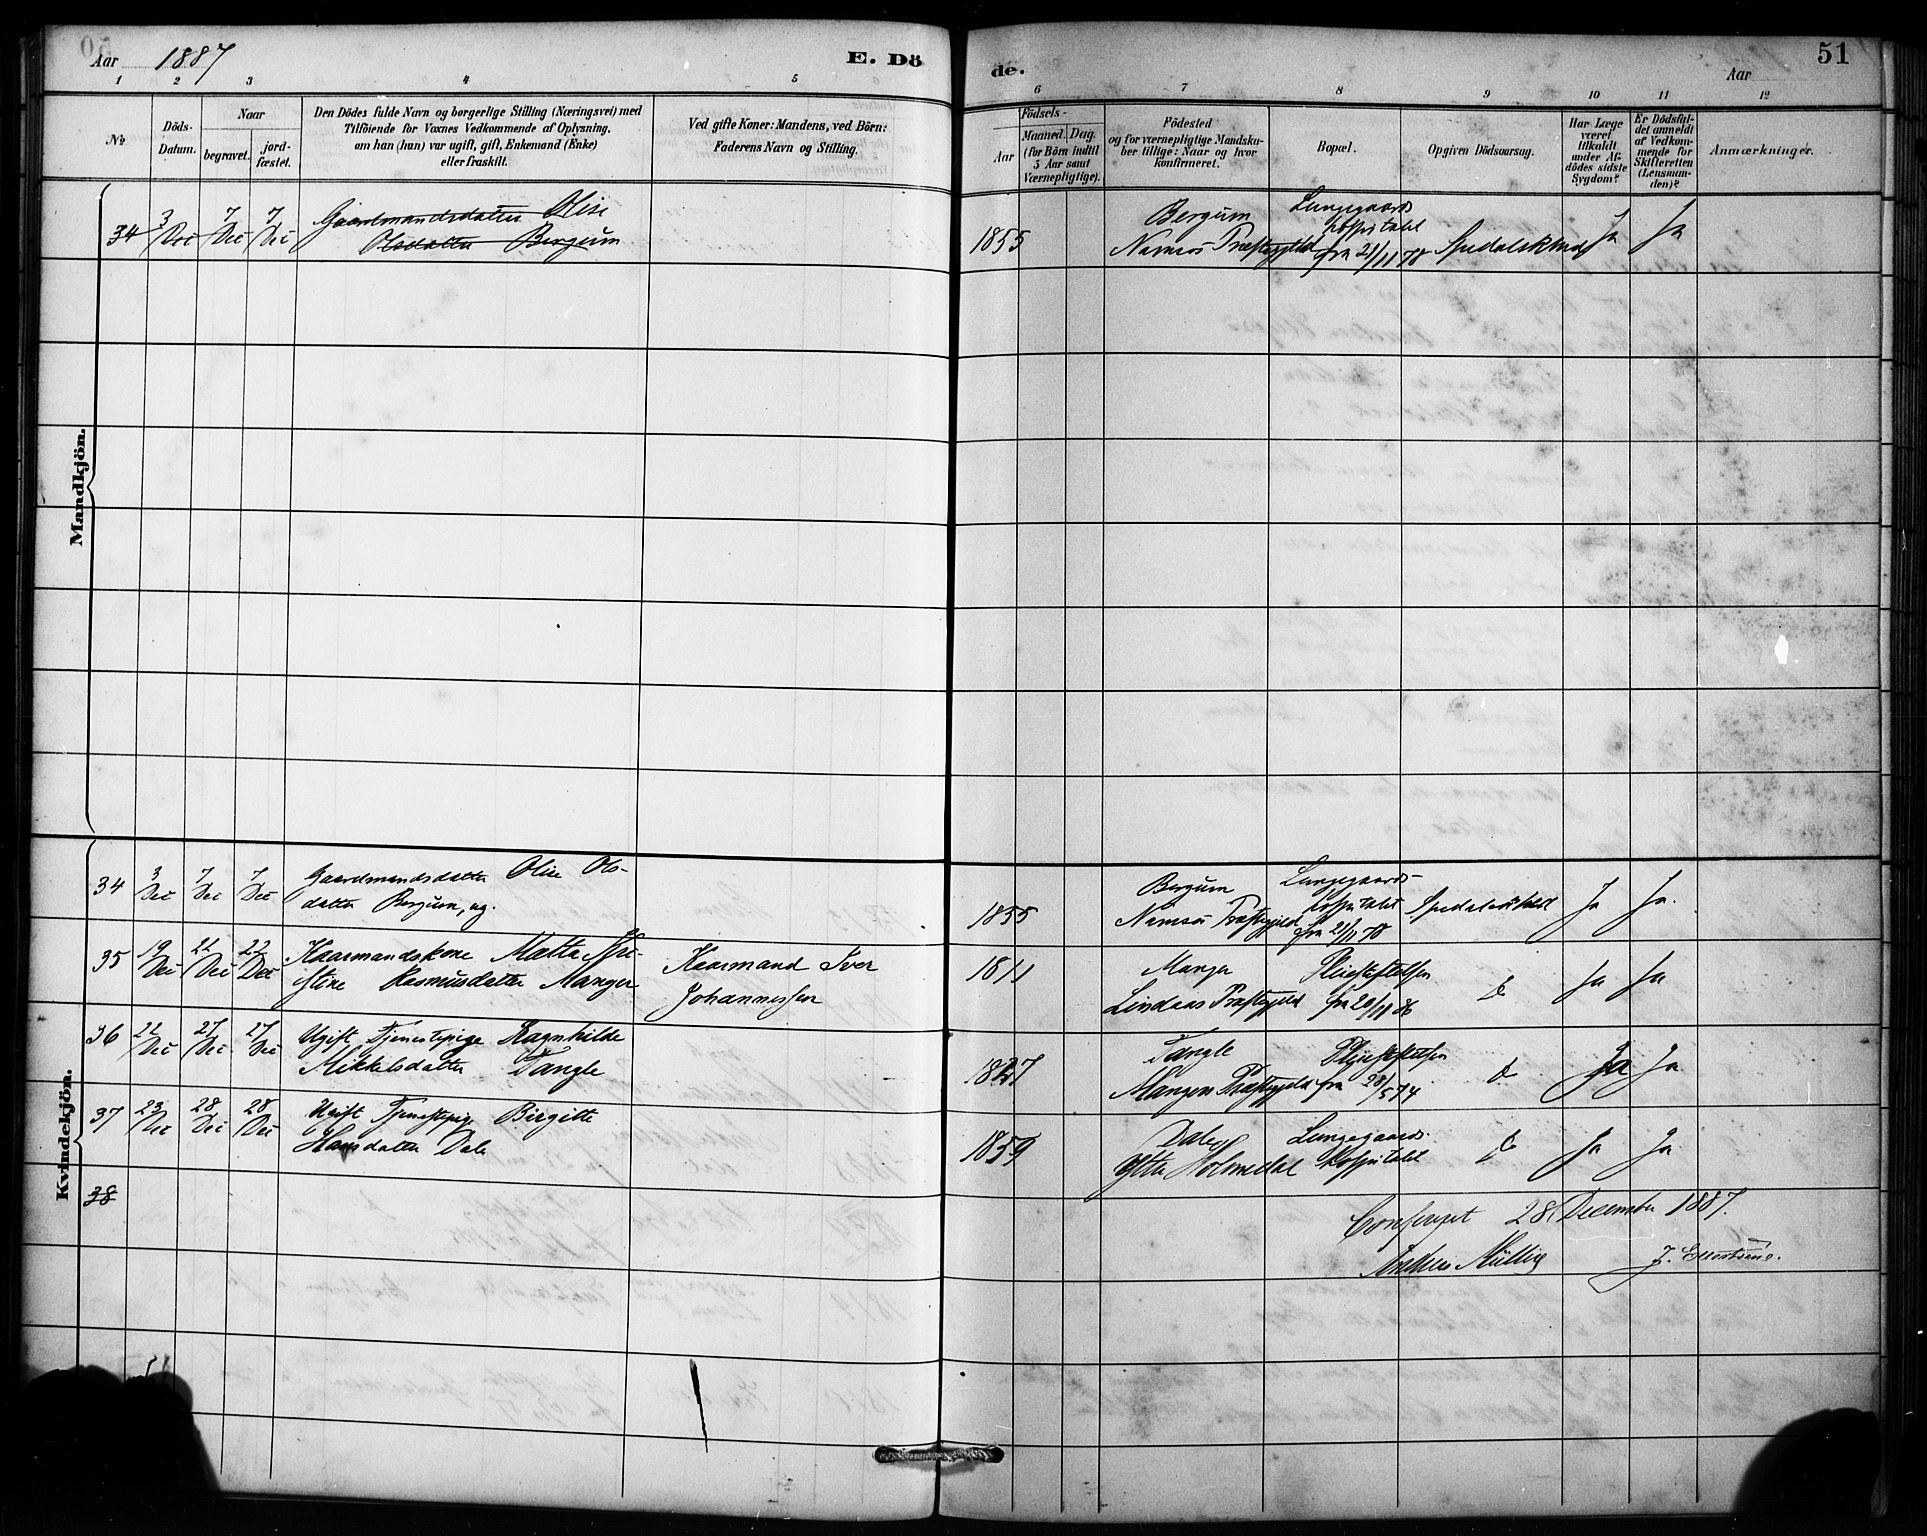 Aar 1887
E. Dö
de.
51
Aar
1 2 3 4 5
6 7 8 9 10 11 12
No
Döds-
Datum.
Naar
begravet.
jord-
fæstet.
Den Dödes fulde Navn og borgerlige Stilling (Næringsvei) med
Tilföiende for Voxnes Vedkommende af Oplysning,
om han (hun) var ugift, gift, Enkemand (Enke)
eller fraskilt.
Ved gifte Koner: Mandens, ved Börn:
Faderens Navn og Stilling.
Födsels-
Aar
Maaned. Dag.
(for Börn indtil
5 Aar samt
Værnepligtige).
Födested
og for værnepligtige Mandska-
ber tillige: Naar og hvor
konfirmeret.
Bopæl.
Opgiven Dödsaarsag.
Har Læge
været
tilkaldt
under Af-
dödes sidste
Sygdom?
Er Dödsfal-
det anmeldt
af Vedkom-
mende for
Skifteretten
(Lensman-
den)?
Anmærkninger.
Mandkjön.
34 3 Dec 7 Dec 7 Dec Gaardmandsdatter Olise
Olsdatter Bergum
1855 Bergum
Namsos Præstegjeld
Lungegaards
hospitalet
fra 21/11 78
Spedalskhed Ja Ja
Kvindekjön.
34 3 Dec 7 Dec 7 Dec Gaardmandsdatter Olise Ols-
datter Bergum, ug.
1855 Bergum
Namsos Præstegjeld
Lungegaards-
hospitalet
fra 21/11 78
Spedalskhed Ja Ja.
35 19 Dec 22 Dec 22 Dec Kaarmandskone Metta Kri-
stine Rasmusdatter Manger
Kaarmand Iver
Johannessen
1811 Manger
Lindaas Præstegjeld
Pleiestiftelsen
fra 20/11 86
Do Ja Ja
36 22 Dec 27 Dec 27 Dec Ugift Tjenestepige Ragnhilde
Mikkelsdatter Tangle
1827 Tangle
Mangers Præstegjeld
Pleiestiftelsen
fra 28/5 74
Do Ja Ja
37 23 Dec 28 Dec 28 Dec Ugift Tjenestepige Birgitte
Hansdatter Dale
1859 Dale
Ytter Holmedal
Lungegaards-
hospitalet
Do Ja Ja
38
Confereret 28 December 1887.